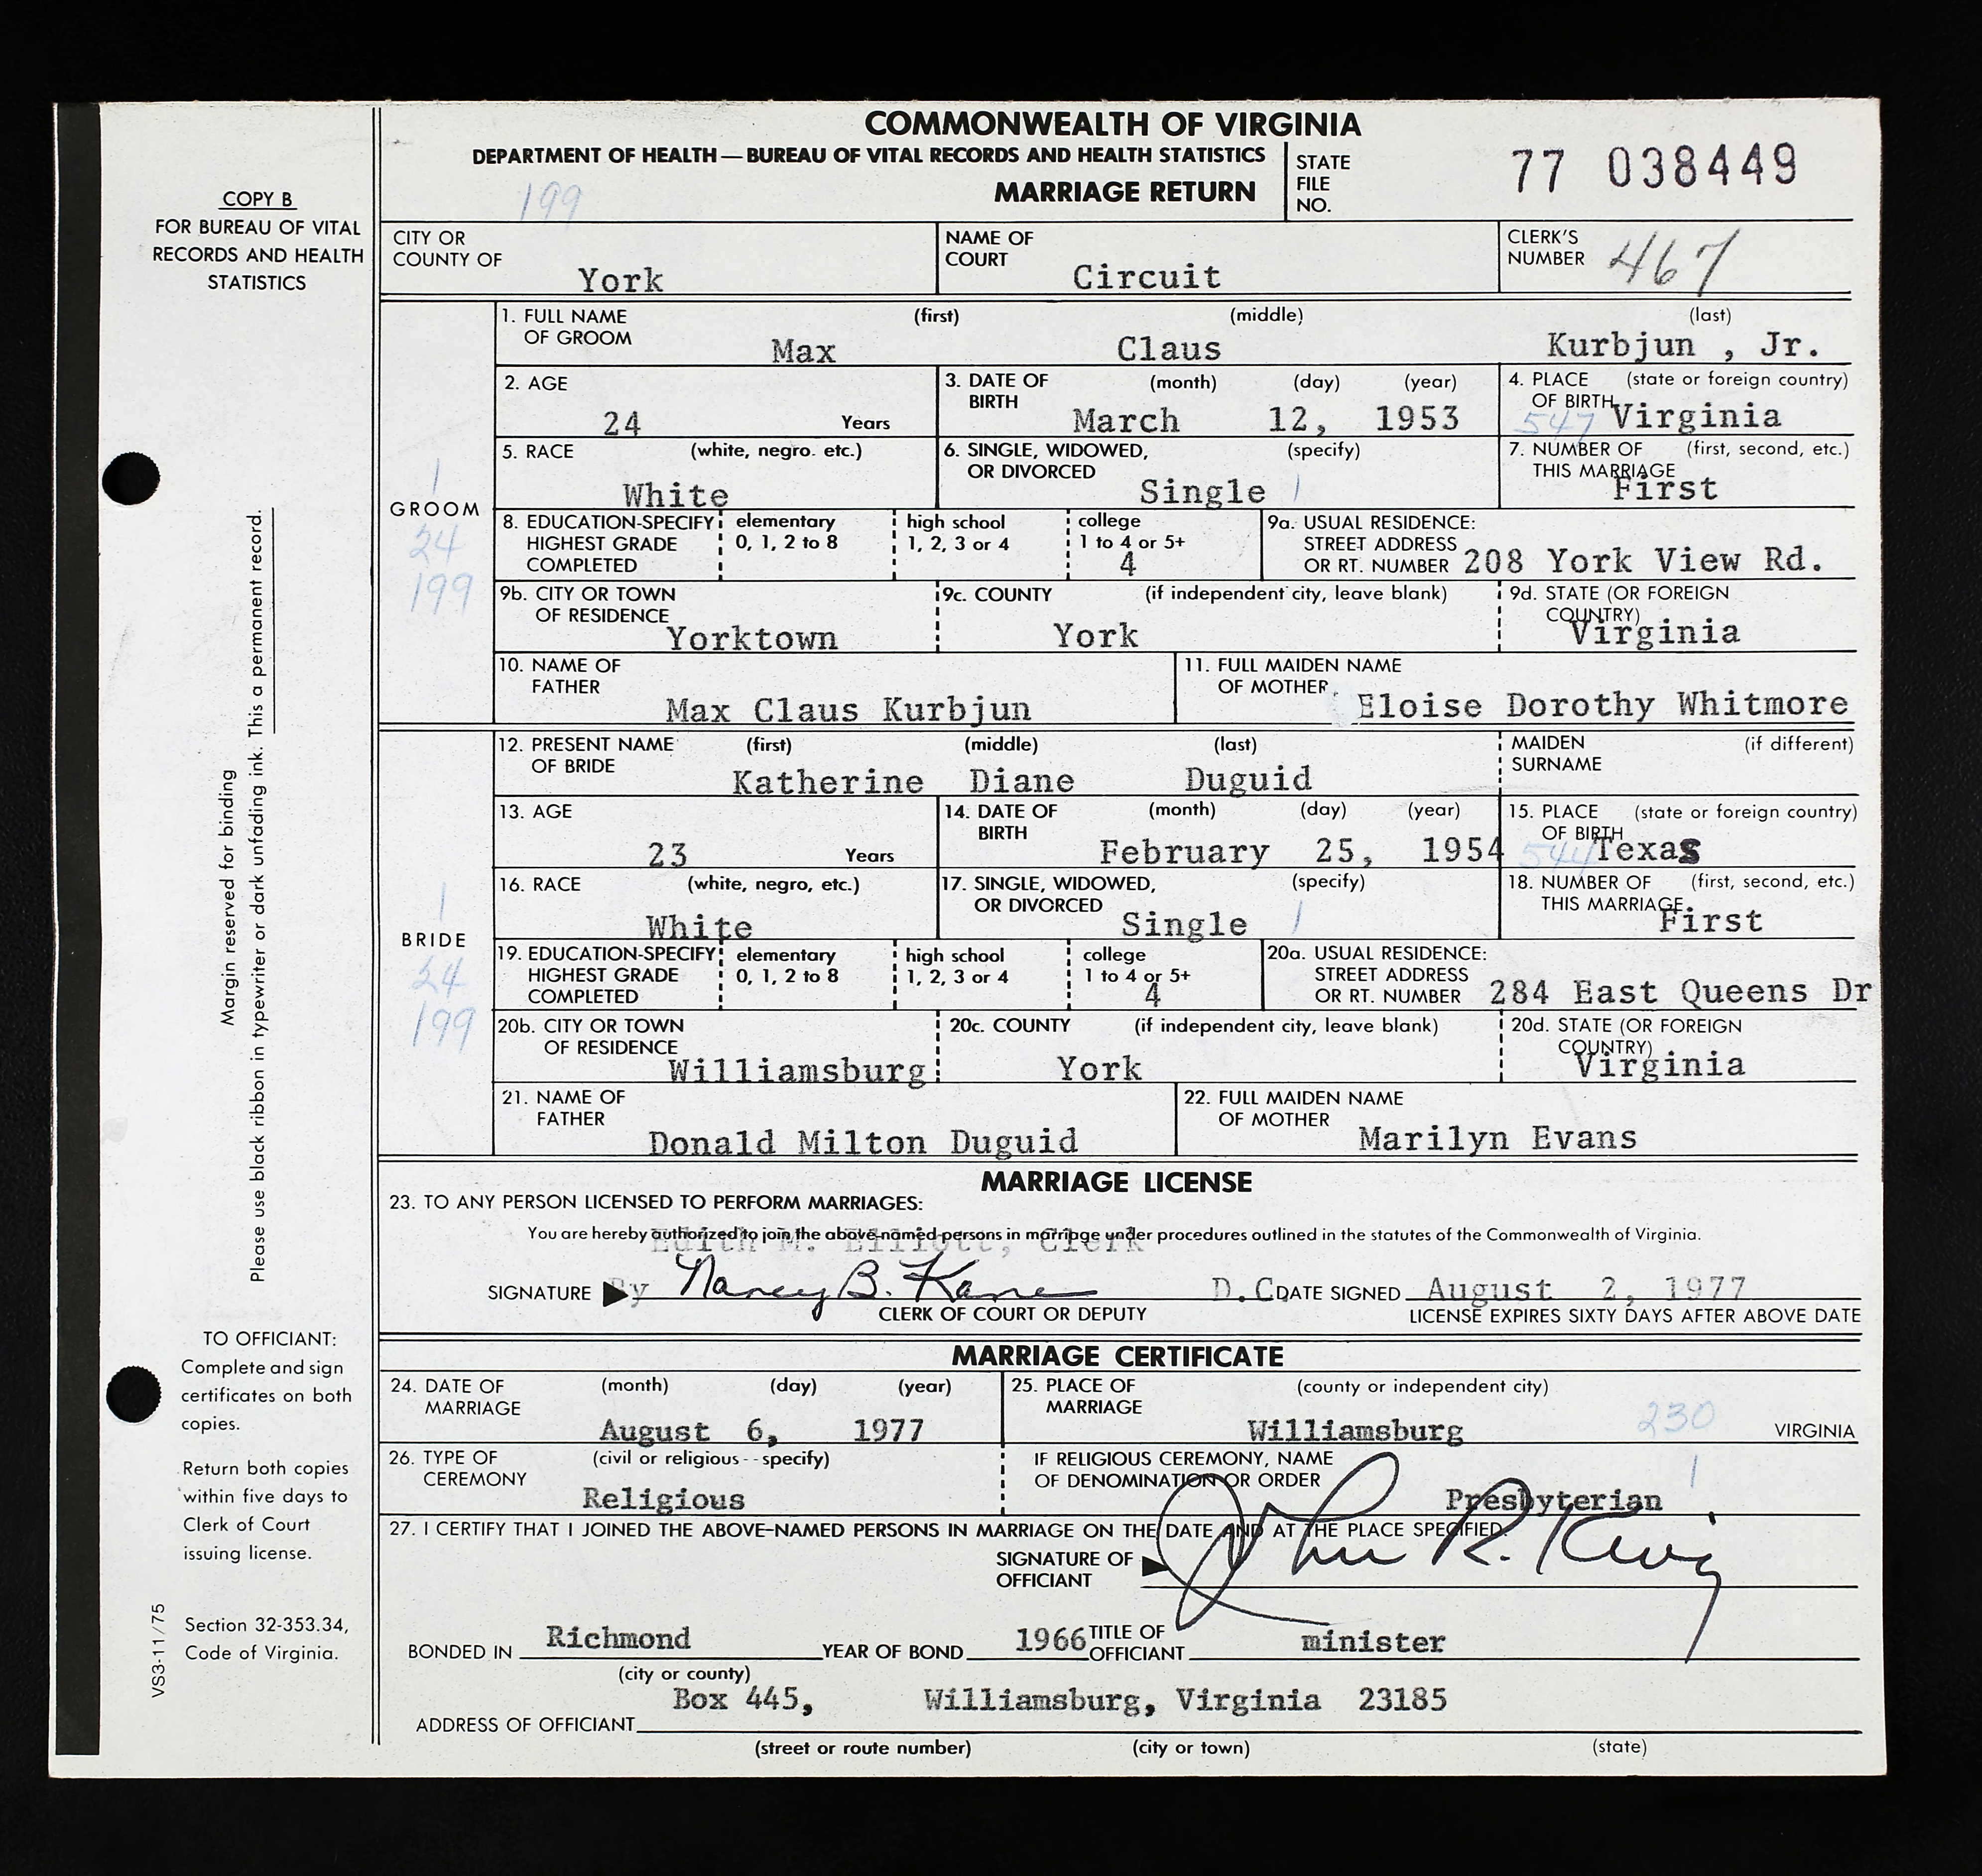 COMMONWEALTH OF VIRGINIA
DEPARTMENT OF HEALTH — BUREAU OF VITAL RECORDS AND HEALTH STATISTICS
199
MARRIAGE RETURN
STATE FILE NO. 77 038449
COPY B
FOR BUREAU OF VITAL
RECORDS AND HEALTH
STATISTICS
CITY OR COUNTY OF York
NAME OF COURT Circuit
CLERK'S NUMBER 467
GROOM
1
24
199
1. FULL NAME OF GROOM (first) Max (middle) Claus (last) Kurbjun , Jr.
2. AGE 24 Years
3. DATE OF BIRTH (month) (day) (year) March 12, 1953
4. PLACE OF BIRTH (state or foreign country) 547 Virginia
5. RACE (white, negro. etc.) White
6. SINGLE, WIDOWED, OR DIVORCED (specify) Single 1
7. NUMBER OF THIS MARRIAGE (first, second, etc.) First
8. EDUCATION-SPECIFY HIGHEST GRADE COMPLETED elementary 0, 1, 2 to 8 high school 1, 2, 3 or 4 college 1 to 4 or 5+ 4
9a. USUAL RESIDENCE: STREET ADDRESS OR RT. NUMBER 208 York View Rd.
9b. CITY OR TOWN OF RESIDENCE Yorktown
9c. COUNTY (if independent city, leave blank) York
9d. STATE (OR FOREIGN COUNTRY) Virginia
10. NAME OF FATHER Max Claus Kurbjun
11. FULL MAIDEN NAME OF MOTHER Eloise Dorothy Whitmore
BRIDE
1
24
199
12. PRESENT NAME OF BRIDE (first) Katherine (middle) Diane (last) Duguid
MAIDEN SURNAME (if different)
13. AGE 23 Years
14. DATE OF BIRTH (month) (day) (year) February 25, 1954
15. PLACE OF BIRTH (state or foreign country) 544 Texas
16. RACE (white, negro, etc.) White
17. SINGLE, WIDOWED, OR DIVORCED (specify) Single 1
18. NUMBER OF THIS MARRIAGE (first, second, etc.) First
19. EDUCATION-SPECIFY HIGHEST GRADE COMPLETED elementary 0, 1, 2 to 8 high school 1, 2, 3 or 4 college 1 to 4 or 5+ 4
20a. USUAL RESIDENCE: STREET ADDRESS OR RT. NUMBER 284 East Queens Dr
20b. CITY OR TOWN OF RESIDENCE Williamsburg
20c. COUNTY (if independent city, leave blank) York
20d. STATE (OR FOREIGN COUNTRY) Virginia
21. NAME OF FATHER Donald Milton Duguid
22. FULL MAIDEN NAME OF MOTHER Marilyn Evans
Margin reserved for binding
Please use black ribbon in typewriter or dark unfading ink. This a permanent record.
MARRIAGE LICENSE
23. TO ANY PERSON LICENSED TO PERFORM MARRIAGES:
You are hereby authorized to join the above-named persons in marriage under procedures outlined in the statutes of the Commonwealth of Virginia.
Edith M. Elliott, Clerk
SIGNATURE By Nancy B. Kane D.C. DATE SIGNED August 2, 1977
CLERK OF COURT OR DEPUTY
LICENSE EXPIRES SIXTY DAYS AFTER ABOVE DATE
MARRIAGE CERTIFICATE
24. DATE OF MARRIAGE (month) (day) (year) August 6, 1977
25. PLACE OF MARRIAGE (county or independent city) Williamsburg 230 VIRGINIA
26. TYPE OF CEREMONY (civil or religious - - specify) Religious
IF RELIGIOUS CEREMONY, NAME OF DENOMINATION OR ORDER Presbyterian 1
27. I CERTIFY THAT I JOINED THE ABOVE-NAMED PERSONS IN MARRIAGE ON THE DATE AND AT THE PLACE SPECIFIED.
SIGNATURE OF OFFICIANT John R.
BONDED IN Richmond YEAR OF BOND 1966 TITLE OF OFFICIANT minister
(city or county)
ADDRESS OF OFFICIANT Box 445, Williamsburg, Virginia 23185
(street or route number) (city or town) (state)
TO OFFICIANT:
Complete and sign
certificates on both
copies.
Return both copies
within five days to
Clerk of Court
issuing license.
Section 32-353.34,
Code of Virginia.
VS3-11/75